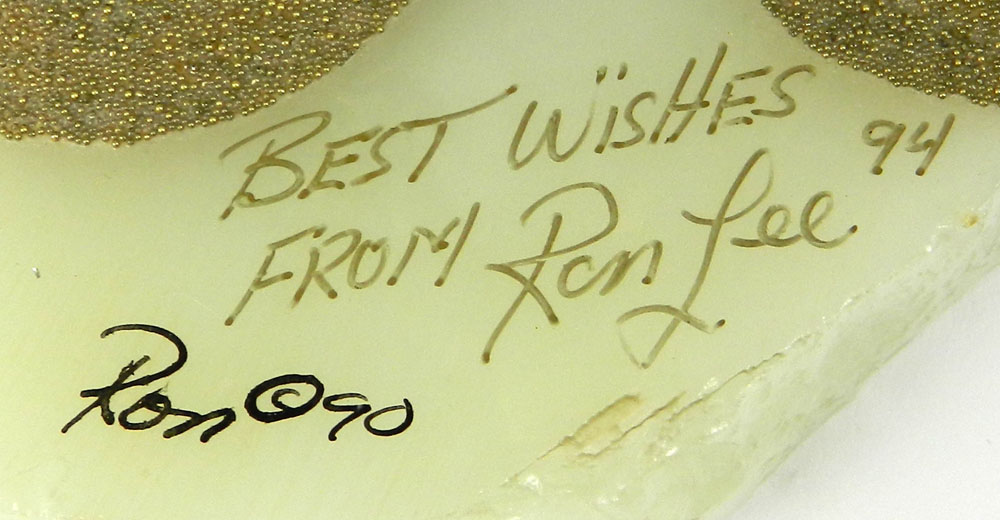 BEST WISHES 94
FROM Ron Lee
Ron © 90